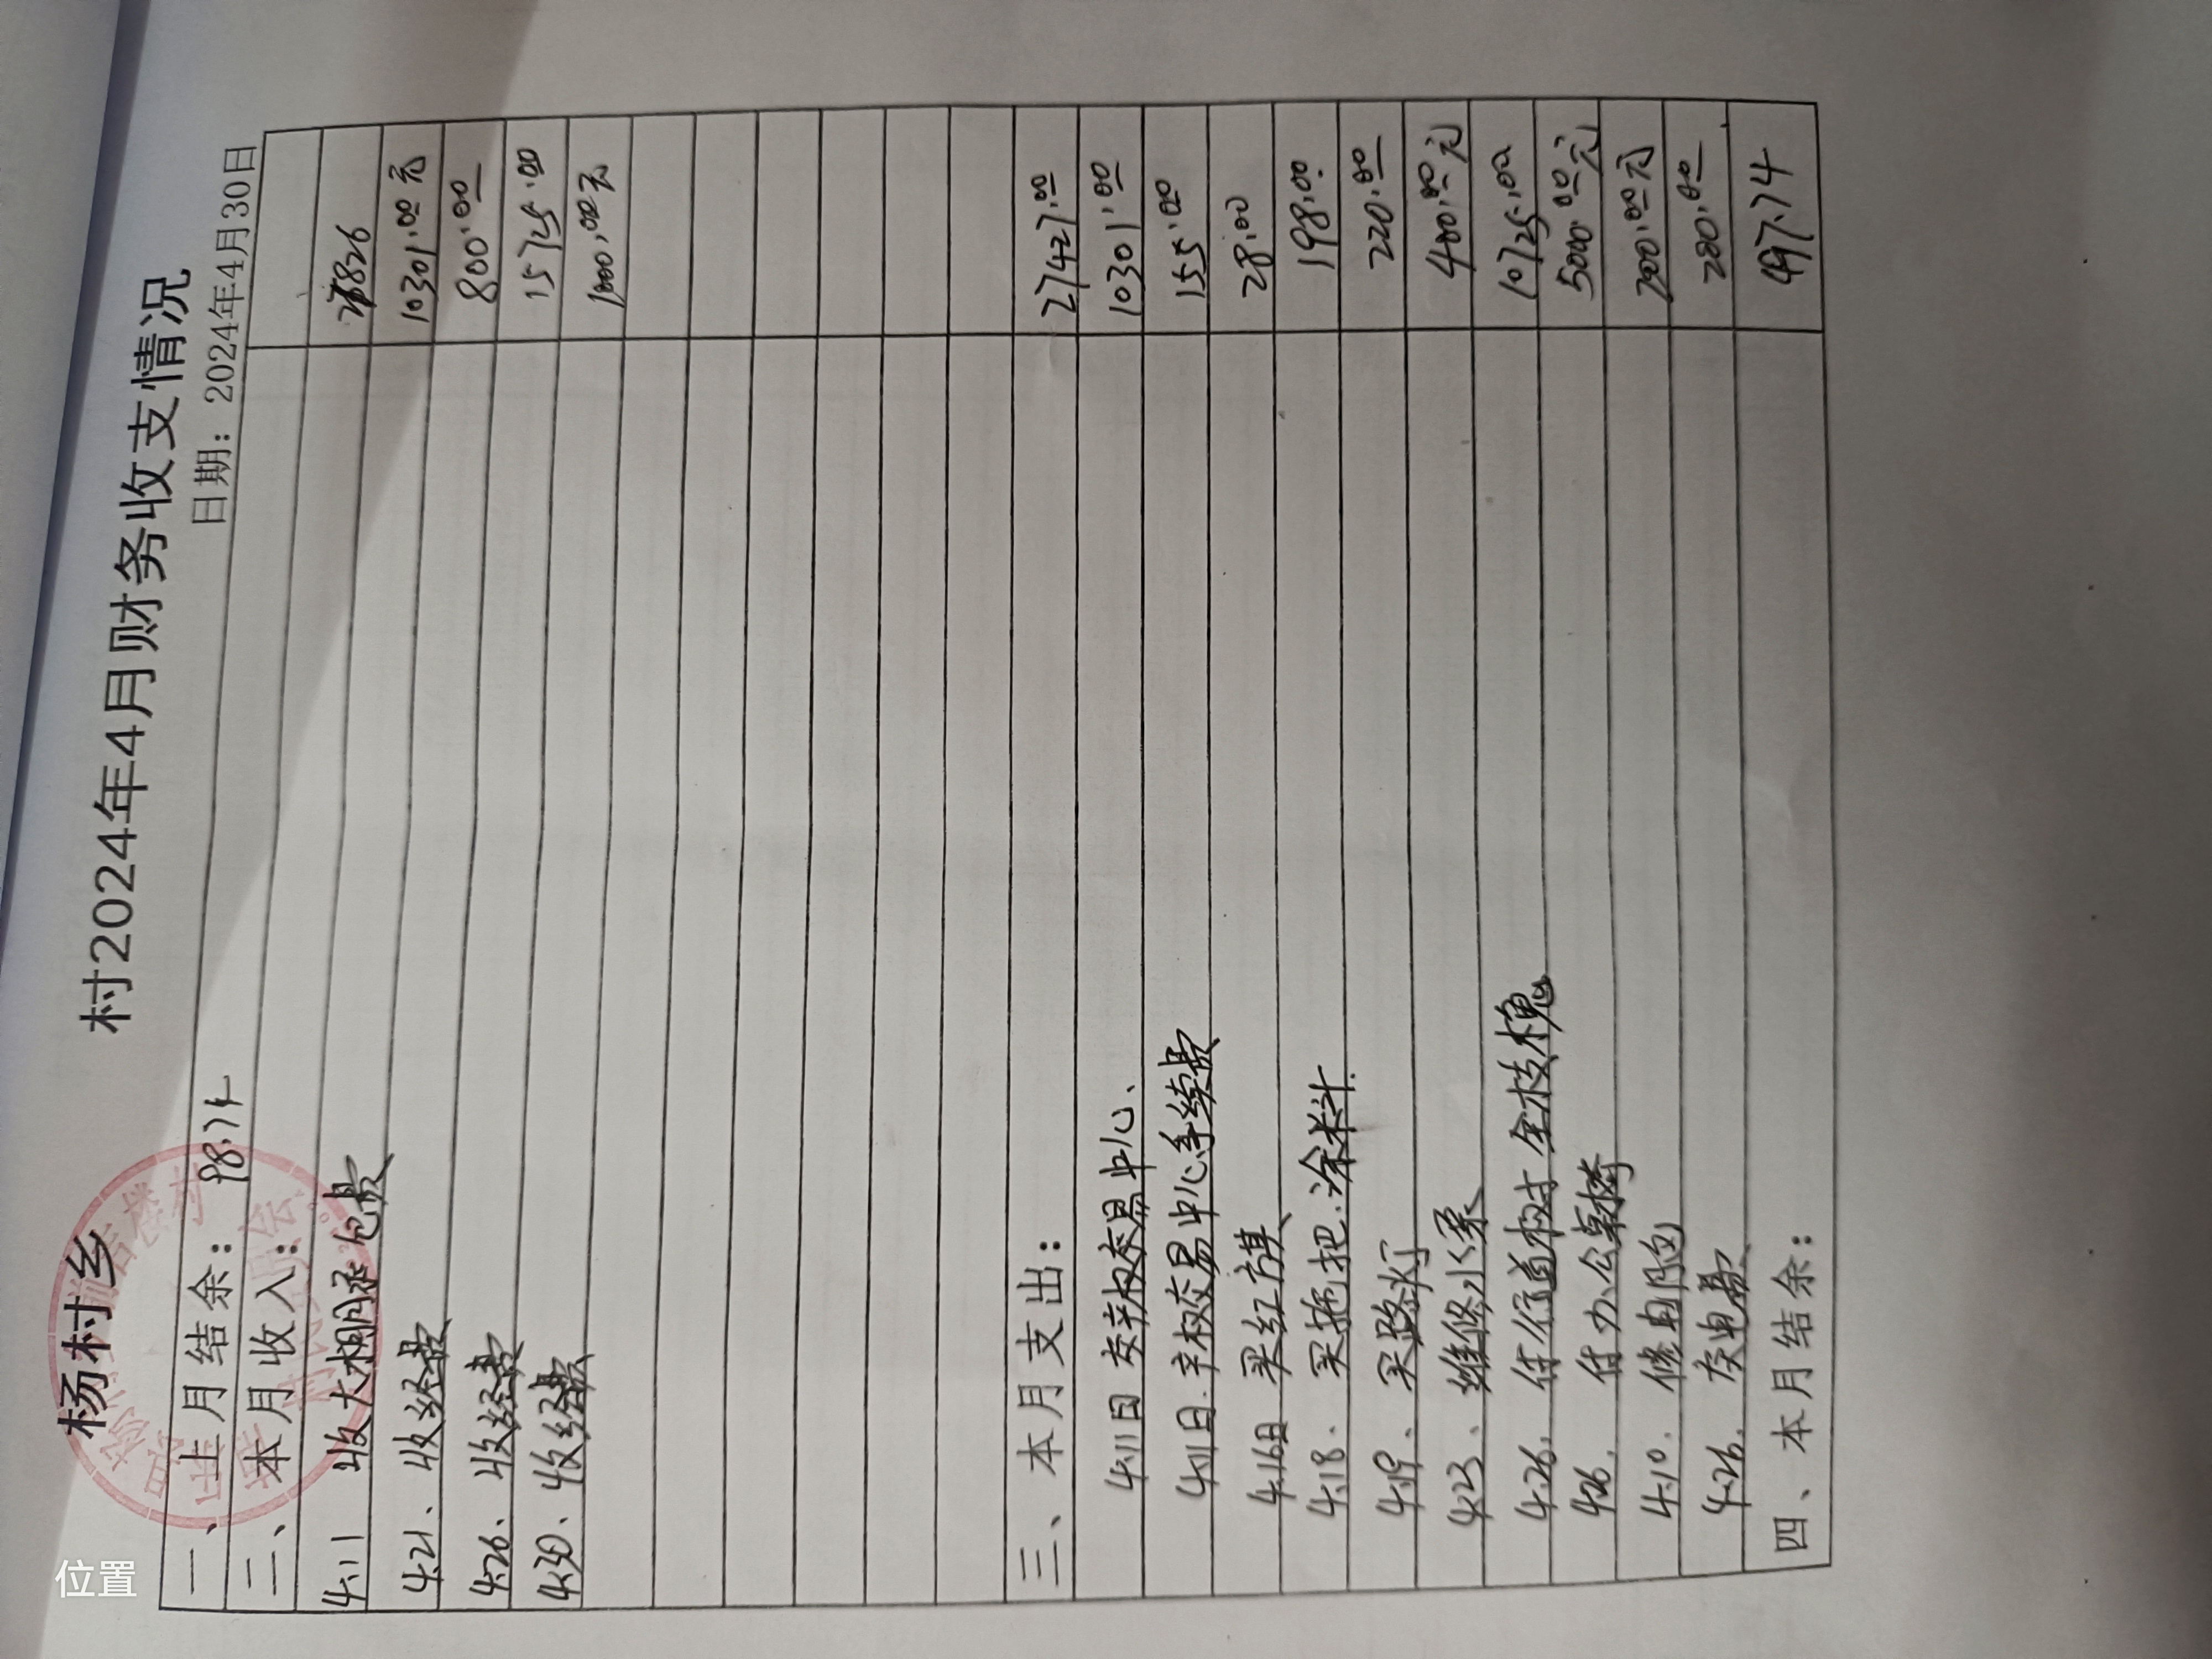 位置
杨村乡 村2024年4月财务收支情况
日期：2024年4月30日
一、上月结余： 98.74
二、本月收入： 826
4.11 收大棚承包费 10301.00元
4.21. 收经费 800.00
4.26. 收经费 15725.00
4.30. 收经费 1000.00元
三、本月支出： 27427.00
4.11日 交产权交易中心. 10301.00
4.11日. 产权交易中心手续费 155.00
4.16日 买红旗 28.00
4.18. 买拖把.涂料. 198.00
4.19. 买路灯 220.00
4.23. 维修水泵 400.00元
4.26. 付行道树 金枝槐 10725.00
4.26. 付办公桌椅 5000.00元
4.10. 修电脑 200.00元
4.26. 交电费 280.00
四、本月结余： 497.74
村民委员会